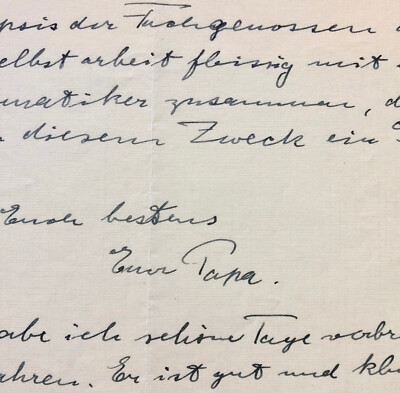 psis der Fachgenossen
selbst arbeit fleissig mit
matiker zusammen, d
diesem Zweck ein
Euch bestens
Euer Papa.
abe ich schöne Tage verbr
ahren. Er ist gut und klu